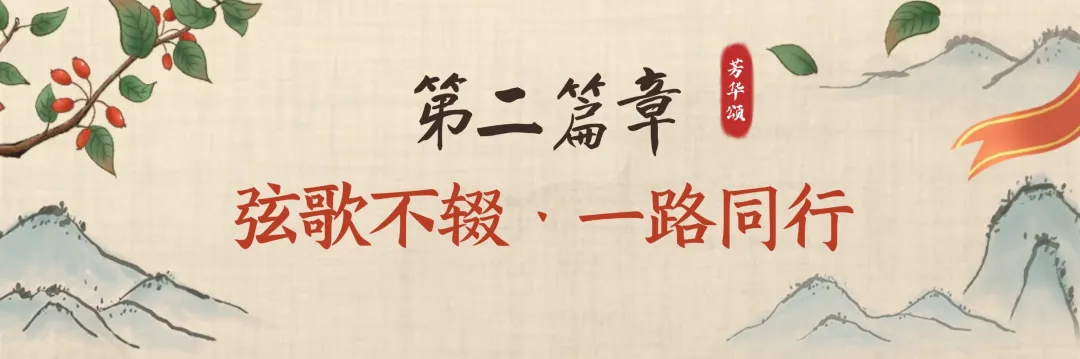 第二篇章
芳华颂
弦歌不辍·一路同行